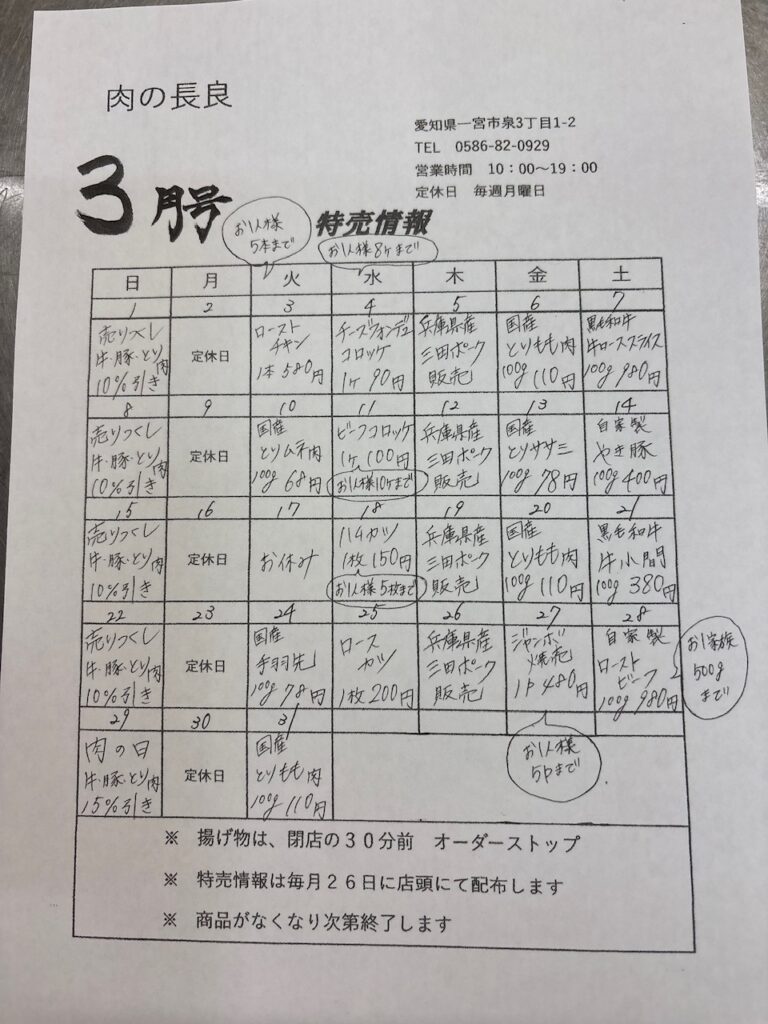 肉の長良
愛知県一宮市泉3丁目1-2
TEL 0586-82-0929
営業時間 10：00～19：00
定休日 毎週月曜日
3月号
特売情報
お1人様
5本まで
お1人様8ヶまで
日 月 火 水 木 金 土
1 2 3 4 5 6 7
売りつくし
牛・豚・とり肉
10%引き
定休日
ロースト
チキン
1本580円
チーズフォンデュ
コロッケ
1ヶ90円
兵庫県産
三田ポーク
販売
国産
とりもも肉
100g 110円
黒毛和牛
牛ローススライス
100g 980円
8 9 10 11 12 13 14
売りつくし
牛・豚・とり肉
10%引き
定休日
国産
とりムネ肉
100g 68円
ビーフコロッケ
1ヶ100円
お1人様10ヶまで
兵庫県産
三田ポーク
販売
国産
とりササミ
100g 78円
自家製
やき豚
100g 400円
15 16 17 18 19 20 21
売りつくし
牛・豚・とり肉
10%引き
定休日
お休み
ハムカツ
1枚150円
お1人様5枚まで
兵庫県産
三田ポーク
販売
国産
とりもも肉
100g 110円
黒毛和牛
牛小間
100g 380円
22 23 24 25 26 27 28
売りつくし
牛・豚・とり肉
10%引き
定休日
国産
手羽先
100g 78円
ロース
カツ
1枚200円
兵庫県産
三田ポーク
販売
ジャンボ
焼売
1P 480円
お1人様
5Pまで
自家製
ロースト
ビーフ
100g 980円
お1家族
500g
まで
29 30 31
肉の日
牛・豚・とり肉
15%引き
定休日
国産
とりもも肉
100g 110円
※ 揚げ物は、閉店の３０分前 オーダーストップ
※ 特売情報は毎月２６日に店頭にて配布します
※ 商品がなくなり次第終了します